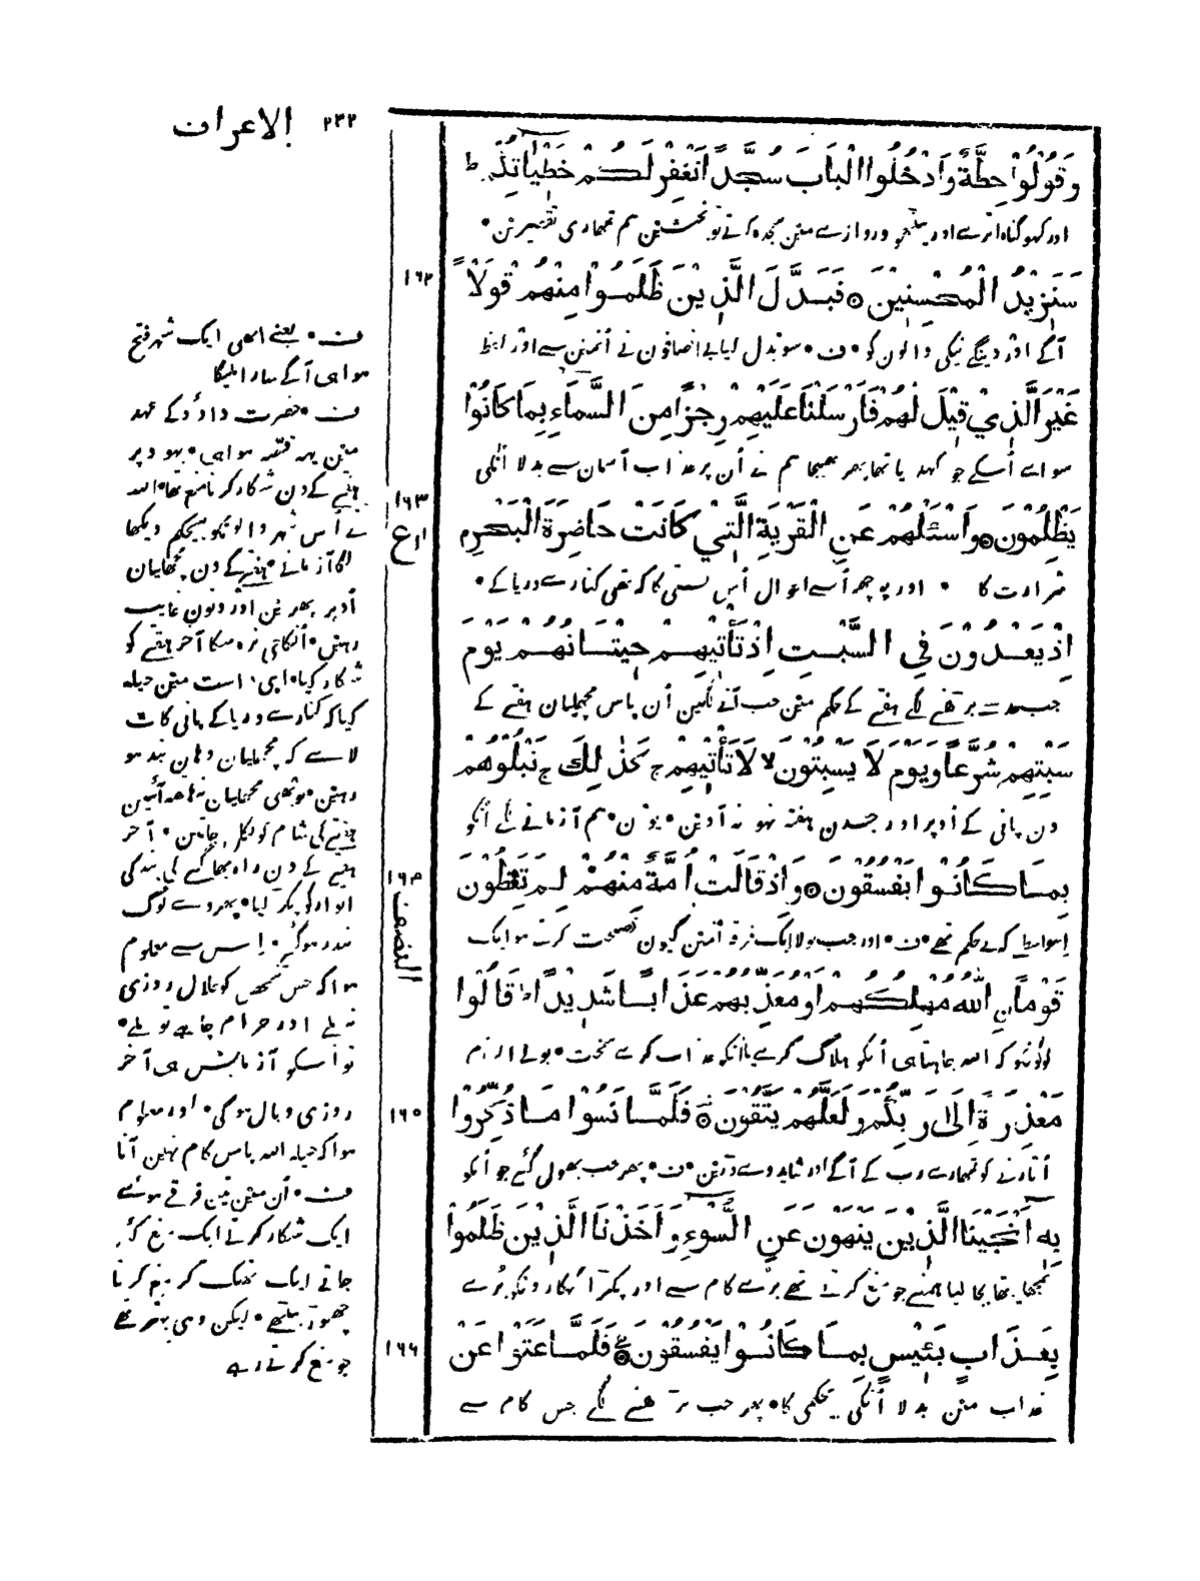 ۲۳۲ الاعراف
وَقُولُوْا حِطَّةٌ وَادْخُلُوا الْبَابَ سُجَّدًا نَغْفِرْ لَكُمْ خَطِيْئَاتِكُمْ ط
اور کہو گناہ اترے اور بیٹھو دروازے مین سجدہ کرتے تو بخشین ہم تمہاری تقصیرین •
سَنَزِيْدُ الْمُحْسِنِيْنَ ۝ فَبَدَّلَ الَّذِيْنَ ظَلَمُوْا مِنْهُمْ قَوْلاً ۱۶۲
آگے اور دینگے نیکی والون کو • ف • سو بدل لیا بے انصافون نے اُنمین سے اور لفظ
غَيْرَ الَّذِيْ قِيْلَ لَهُمْ فَاَرْسَلْنَا عَلَيْهِمْ رِجْزًا مِنَ السَّمَاءِ بِمَا كَانُوْا
سواے اُسکے جو کہہ دیا تھا پھر بھیجا ہم نے اُن پر عذاب آسمان سے بدلا اُنکی
يَظْلِمُوْنَ ۝ وَاسْئَلْهُمْ عَنِ الْقَرْيَةِ الَّتِيْ كَانَتْ حَاضِرَةَ الْبَحْرِ م ۱۶۳
شرارت کا • اور پوچھ اُن سے احوال اُس بستی کا کہ تھی کنارے دریا کے •
اِذْ يَعْدُوْنَ فِي السَّبْتِ اِذْ تَأْتِيْهِمْ حِيْتَانُهُمْ يَوْمَ
جب حد سے بڑھنے لگے ہفتے کے حکم مین جب آنے لگین اُن پاس مچھلیان ہفتے کے
سَبْتِهِمْ شُرَّعًا وَيَوْمَ لَا يَسْبِتُوْنَ لا لَا تَأْتِيْهِمْ ج كَذٰلِكَ ج نَبْلُوْهُمْ
دن پانی کے اُوپر اور جس دن ہفتہ نہو نہ آوین • یون • ہم آزمانے لگے اُنکو
بِمَا كَانُوْا يَفْسُقُوْنَ ۝ وَاِذْ قَالَتْ اُمَّةٌ مِنْهُمْ لِمَ تَعِظُوْنَ ۱۶۴ النصف
اِسواسطے کہ بے حکم تھے • ف • اور جب بولا ایک فرقہ اُنمین کیون نصیحت کرتے ہو ایک
قَوْمًا نِ اللّٰهُ مُهْلِكُهُمْ اَوْ مُعَذِّبُهُمْ عَذَابًا شَدِيْدًا ط قَالُوْا
لوگونکو کہ اللہ چاہتا ہی اُنکو ہلاک کرے یا اُنکو عذاب کرے سخت • بولے الزام
مَعْذِرَةً اِلٰى رَبِّكُمْ وَلَعَلَّهُمْ يَتَّقُوْنَ ۝ فَلَمَّا نَسُوْا مَا ذُكِّرُوْا ۱۶۵
اُتارنے کو تمہارے رب کے آگے اور شاید وے ڈرین • ف • پھر جب بھول گئے جو اُنکو
بِهِ اَنْجَيْنَا الَّذِيْنَ يَنْهَوْنَ عَنِ السُّوْءِ وَاَخَذْنَا الَّذِيْنَ ظَلَمُوْا
سمجھایا تھا بچا لیا ہمنے جو منع کرتے تھے بُرے کام سے اور پکڑا گنہگارونکو بُرے
بِعَذَابٍ بَئِيْسٍ بِمَا كَانُوْا يَفْسُقُوْنَ ۝ فَلَمَّا عَتَوْا عَنْ ۱۶۶
عذاب مین بدلا اُنکی بیحکمی کا • پھر جب بڑھنے لگے جس کام سے
ف • یعنے ابھی ایک شہر فتح
ہوا ہی آگے سارا ملیگا
ف • حضرت داؤد کے عہد
مین یہہ قصہ ہوا ہی • یہود پر
ہفتے کے دن شکار کرنا منع تھا • اللہ
نے اُس شہر والونکو بیحکم دیکھا
لگا آزمانے • ہفتے کے دن مچھلیان
اُوپر پھرتین اور دنون غایب
رہتین • اُنکا جی نرہ سکا آخر ہفتے کو
شکار کیا • اپنی دانست مین حیلہ
کیا کہ کنارے دریا کے پانی کاٹ
لاے کہ مچھلیان وہان بند ہو
رہین • تو بھی مچھلیان نہ ہاتھ آئین
ہفتے کی شام کو نکل جاتین • آخر
ہفتے کے دن راہ بھاگنے کی بند کی
اتوار کو پکڑ لیا • پھر وے لوگ
بندر ہوگئے • اِس سے معلوم
ہوا کہ جس شخص کو حلال روزی
نہ ملے اور حرام چاہے تو ملے •
تو اُسکو آزمایش ہی آخر
روزی وبال ہوگی • اور معلوم
ہوا کہ حیلہ اللہ پاس کام نہین آتا
ف • اُن مین تین فرقے ہوئے
ایک شکار کرتے ایک منع کئے
جاتے ایک تھک کر منع کرنا
چھوڑ بیٹھے • لیکن وہی بہتر تھے
جو منع کرتے رہے